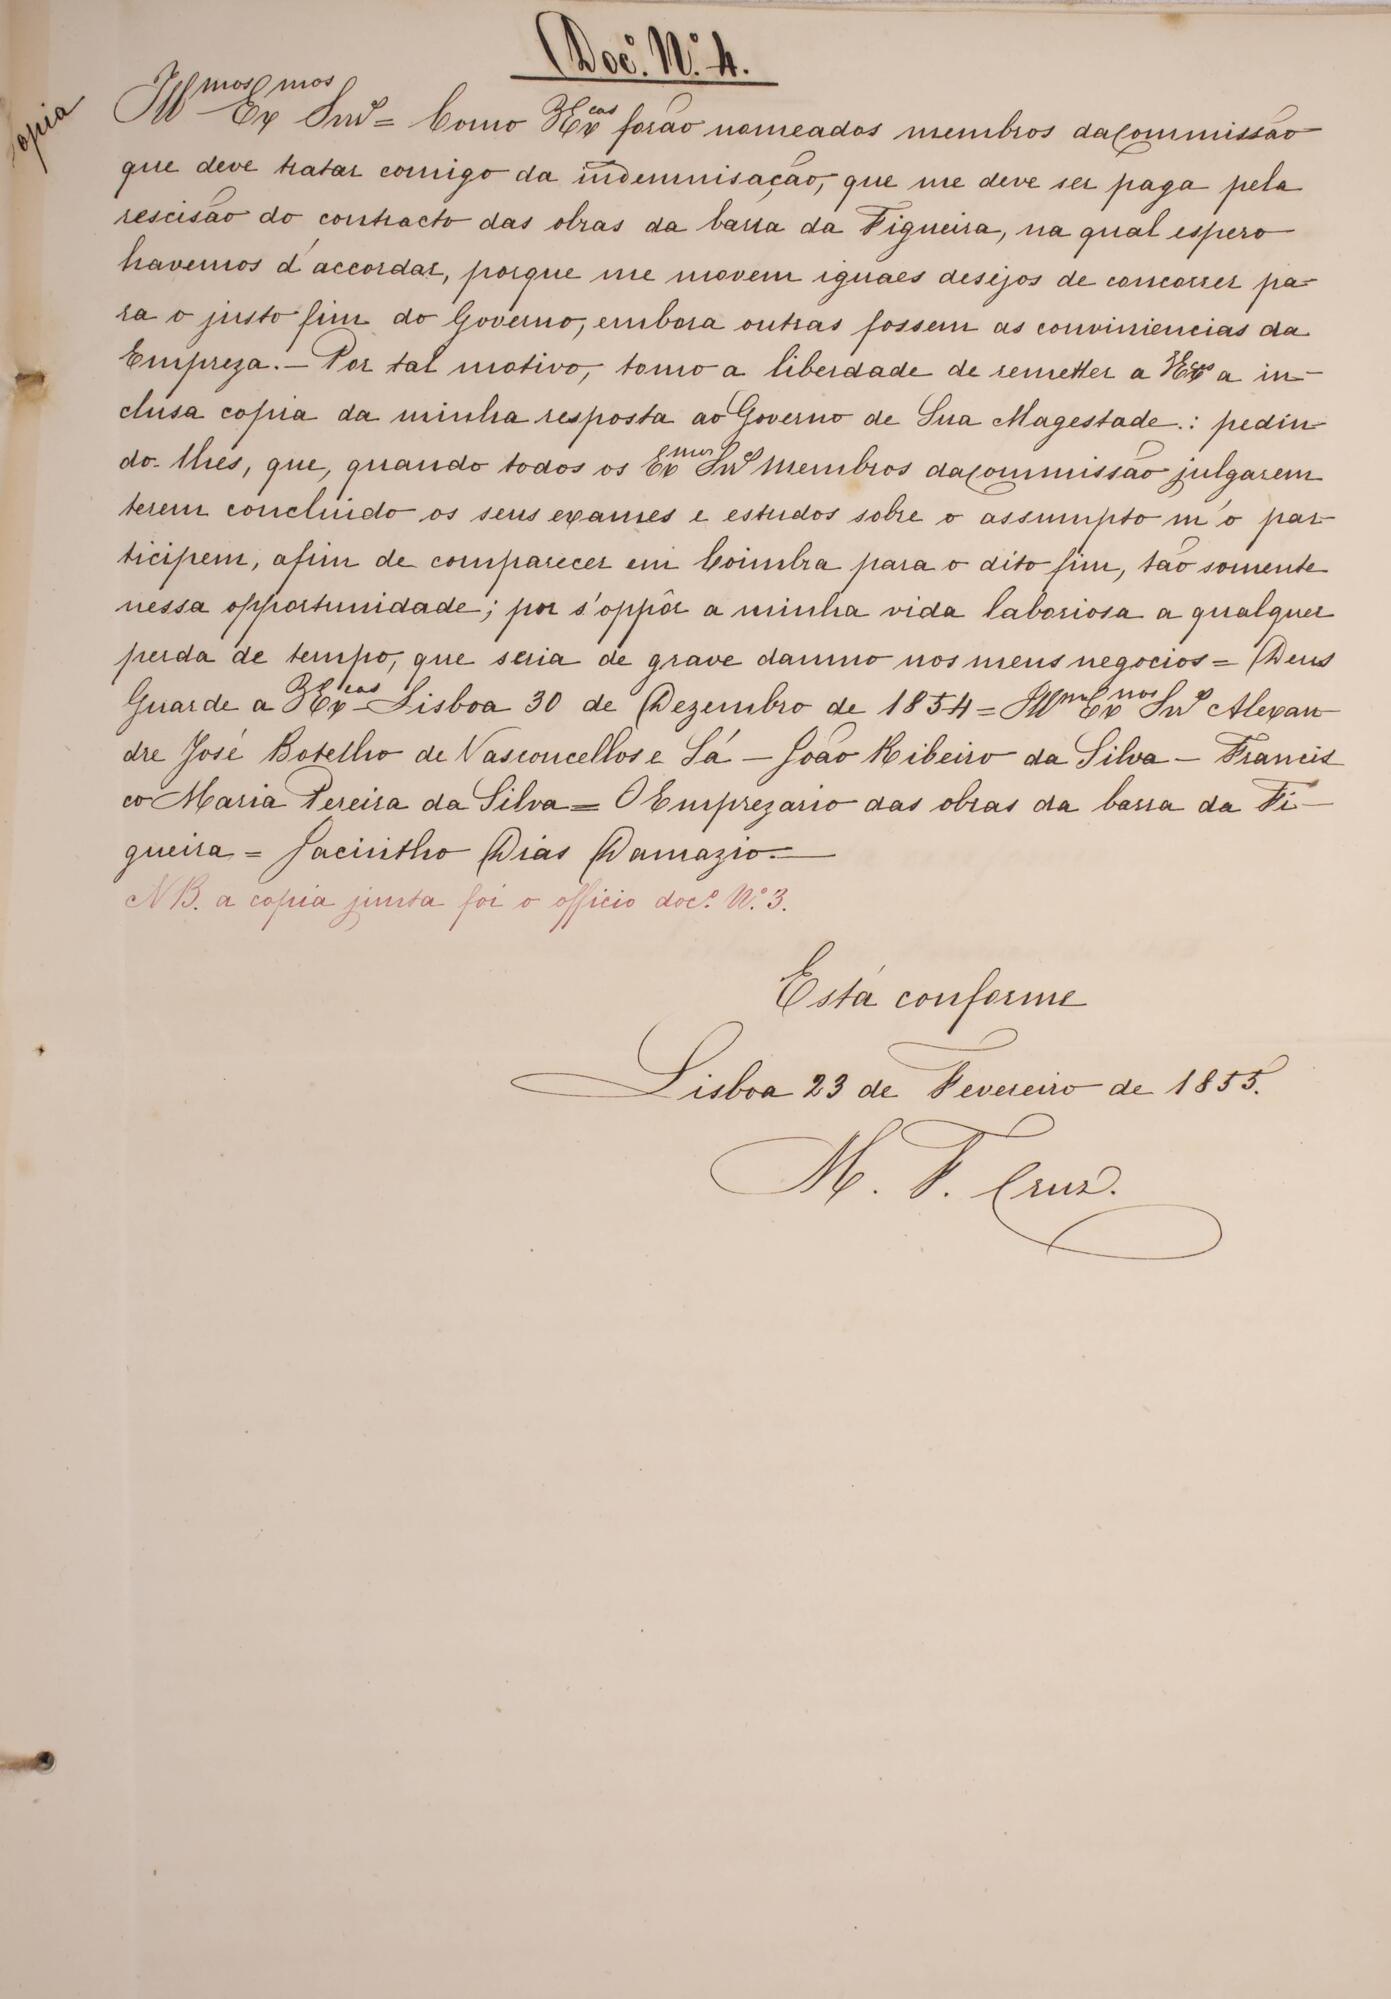 Doc.º N.º 4.
Copia
Ill.mos Ex.mos Snr.es = Como V.Ex.cas forão nomeados membros da Commissão
que deve tratar comigo da indemnisação, que me deve ser paga pela
rescisão do contracto das obras da barra da Figueira, na qual espero
havemos d'accordar, porque me movem iguaes desejos de concorrer pa-
ra o justo fim do Governo, embora outras fossem as conviniencias da
Empreza. — Por tal motivo, tomo a liberdade de remetter a V.Ex.as a in-
clusa copia da minha resposta ao Governo de Sua Magestade.: pedin-
do-lhes, que, quando todos os Ex.mos Snr.es Membros da Commissão julgarem
terem concluido os seus exames e estudos sobre o assumpto m'o par-
ticipem, afim de comparecer em Coimbra para o dito fim, tão somente
nessa opportunidade; por s'oppôr a minha vida laboriosa a qualquer
perda de tempo, que seria de grave damno nos meus negocios = Deus
Guarde a V.Ex.cas - Lisboa 30 de Dezembro de 1854 = Ill.mos Ex.mos Snr.es Alexan-
dre José Botelho de Vasconcellos e Sá — João Ribeiro da Silva — Francis
co Maria Pereira da Silva = O Emprezario das obras da barra da Fi-
gueira = Jacintho Dias Damazio. —
NB. a copia junta foi o officio doc.º N.º 3.
Está conforme
Lisboa 23 de Fevereiro de 1855.
M. F. Cruz.